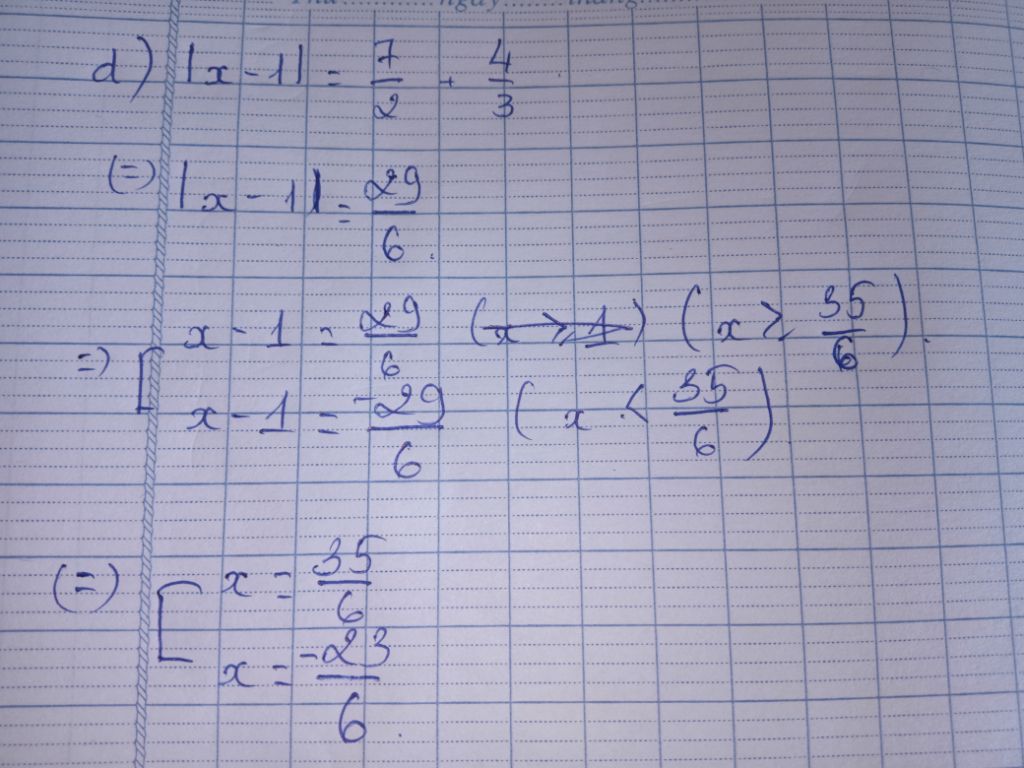 Thứ ............ngày........tháng........
d) |x - 1| = 7/2 + 4/3
(=) |x - 1| = 29/6.
=) [ x - 1 = 29/6 (x ≥ 1) (x ≥ 35/6).
x - 1 = -29/6 (x < 35/6)
(=) [ x = 35/6
x = -23/6.